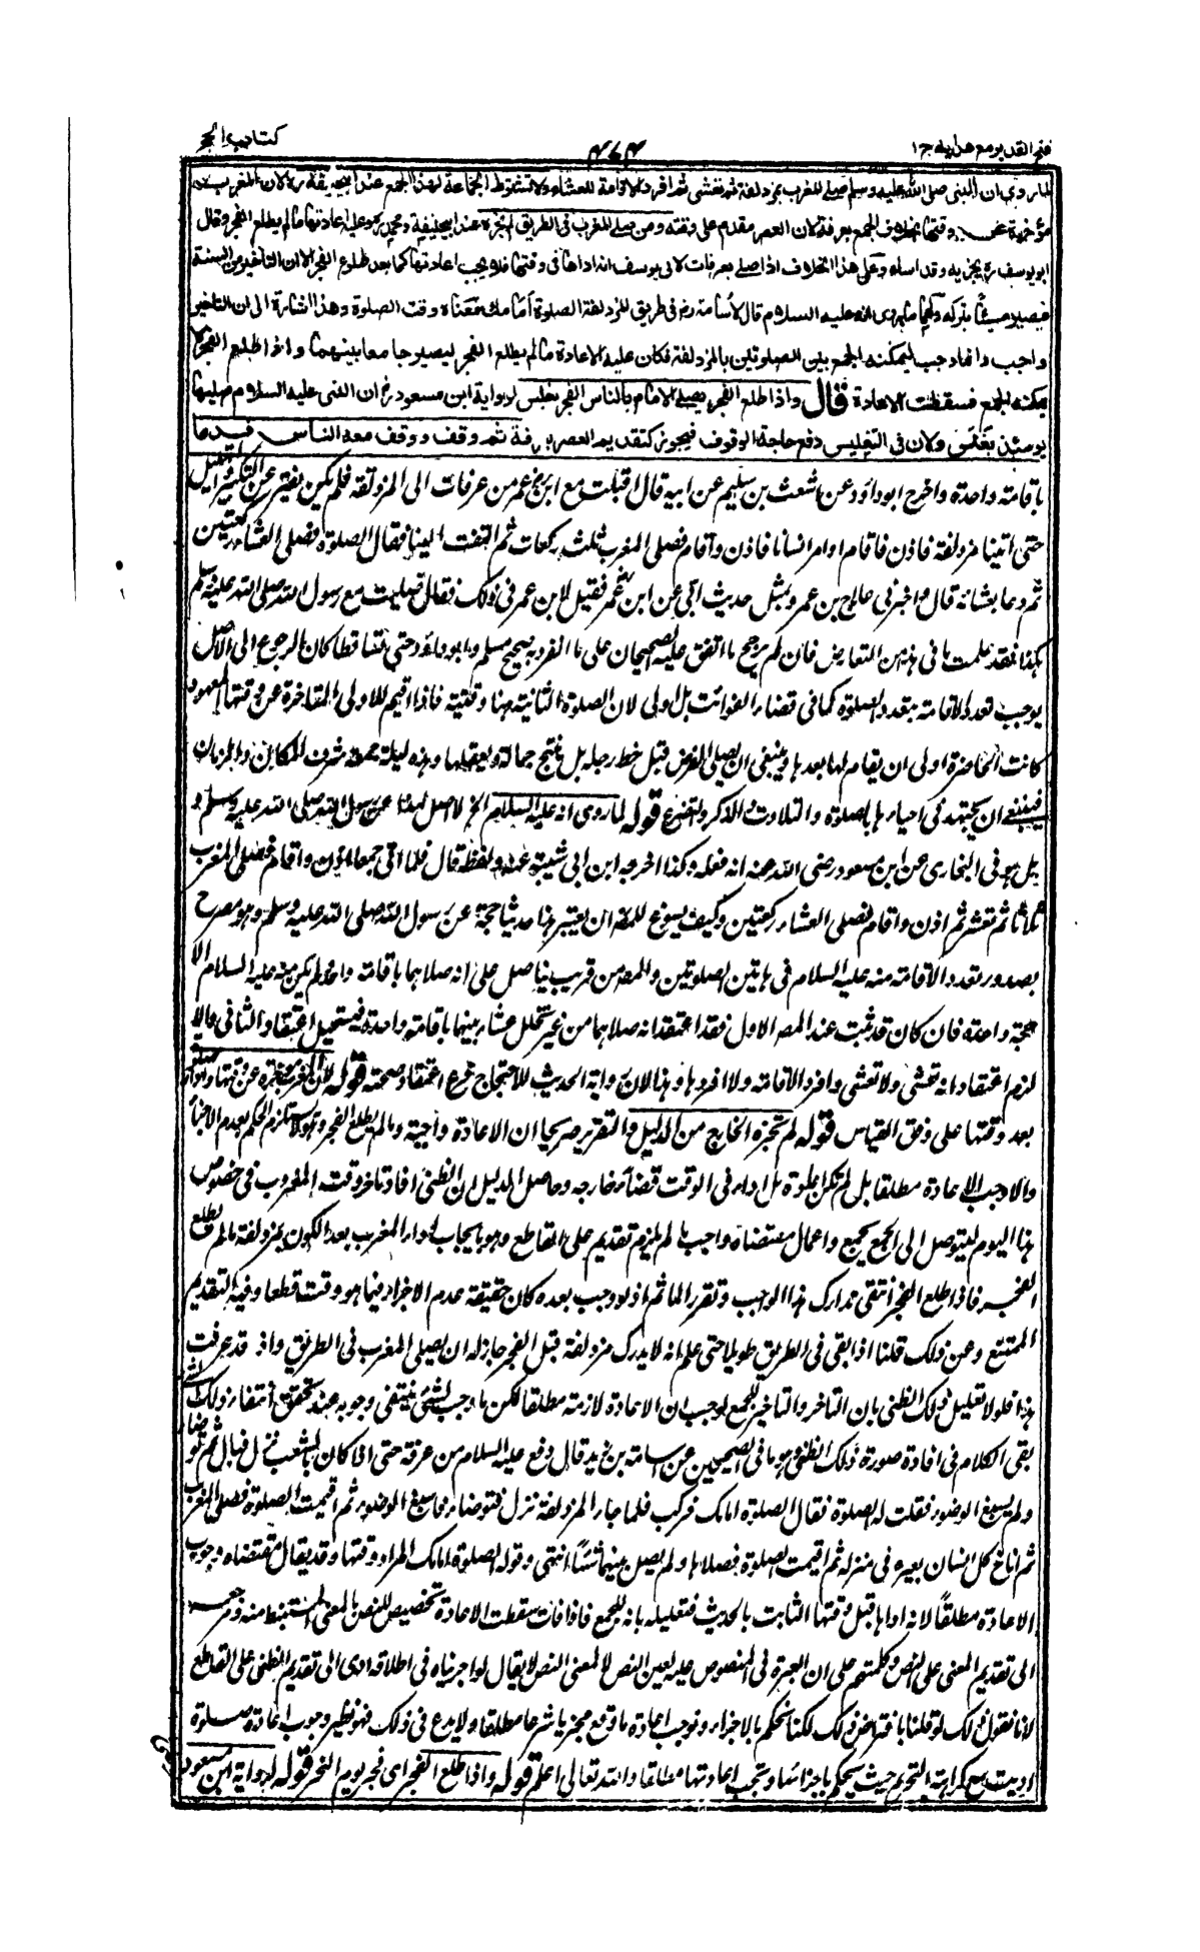 فتح القدير مع هدايه ج ١
٤٧٤
كتاب الحج
لما روى ان النبى صلى الله عليه وسلم صلى المغرب بمزدلفة ثم تعشى ثم افرد الاقامة للعشاء ولا تشترط الجماعة لهذا الجمع عند ابيحنيفة رح لان المغرب
مؤخرة عن وقتها بخلاف الجمع بعرفة لان العصر مقدم على وقته ومن صلى المغرب فى الطريق لم تجزه عند ابيحنيفة ومحمد رح وعليه اعادتها مالم يطلع الفجر وقال
ابو يوسف رح يجزيه وقد اساء وعلى هذا الخلاف اذا صلى بعرفات لابى يوسف انه اداها فى وقتها فلا يجب اعادتها كما بعد طلوع الفجر الا ان التاخير من السنة
فيصير مسئًا بتركه ولهما ما روى انه عليه السلام قال لاسامة رض فى طريق المزدلفة الصلوة امامك معناه وقت الصلوة وهذا اشارة الى ان التاخير
واجب وانما وجب ليمكنه الجمع بين الصلوتين بالمزدلفة فكان عليه الاعادة مالم يطلع الفجر ليصير جامعا بينهما واذا طلع الفجر لا
يمكنه الجمع فسقطت الاعادة قال واذا طلع الفجر يصلى الامام بالناس الفجر بغلس لرواية ابن مسعود رض ان النبى عليه السلام صليها
يومئذ بغلس ولان فى التغليس دفع حاجة الوقوف فيجوز كتقديم العصر بعرفة ثم وقف ووقف معه الناس فدعا
باقامة واحدة واخرج ابو داود عن اشعث بن سليم عن ابيه قال اقبلت مع ابن عمر من عرفات الى المزدلفة فلم يكن يفتر عن التكبير والتهليل
حتى اتينا مزدلفة فاذن فاقام او امر انسانا فاذن واقام فصلى المغرب ثلث ركعات ثم التفت الينا فقال الصلوة فصلى العشاء ركعتين
ثم دعا بعشائه قال واخبرنى علاج بن عمرو بمثل حديث ابى عن ابن عمر فقيل لابن عمر فى ذلك فقال صليت مع رسول الله صلى الله عليه وسلم
هكذا فقد علمت ما فى هذا من التعارض فان لم يرجح ما اتفق عليه الصحيحان على ما انفرد به صحيح مسلم وابو داؤد حتى تساقطا كان الرجوع الى الاصل
يوجب تعدد الاقامة بتعدد الصلوة كما فى قضاء الفوائت بل اولى لان الصلوة الثانية هنا وقتية فاذا اقيم للاولى المتاخرة عن وقتها المعهود
كانت الحاضرة اولى ان يقام لها بعدها وينبغى ان يصلى الفرض قبل حط رحله بل ينيخ جماله ويعقلها وهذه ليلة جمعت شرف المكان والزمان
فينبغى ان يجتهد فى احيائها بالصلوة والتلاوة والذكر والتضرع قوله لما روى انه عليه السلام الخ لا اصل لهذا عن رسول الله صلى الله عليه وسلم
بل هو فى البخارى عن ابن مسعود رضى الله عنه انه فعله وكذا اخرجه ابن ابى شيبة عنه ولفظه قال فلما اتى جمعا اذن واقام فصلى المغرب
ثلاثا ثم تعشى ثم اذن واقام فصلى العشاء ركعتين وكيف يسوغ للمص ان يعتبر هذا حديثا حجة عن رسول الله صلى الله عليه وسلم وهو مصرح
بصدور تعدد الاقامة منه عليه السلام فى هاتين الصلوتين والمص من قريب يناضل على انه صلاهما باقامة واحدة ولم يكن منه عليه السلام الا
حجة واحدة فان كان قد ثبت عند المص الاول فقد اعتقد انه صلاهما من غير تخلل عشاء بينهما باقامة واحدة فيستحيل اعتقاد الثانى والا
لزم اعتقاد انه تعشى ولا تعشى وافرد الاقامة ولا افردها وهذا لان رواية الحديث للاحتجاج فرع اعتقاد صحته قوله لان المغرب مؤخرة عن وقتها
بعد وقتها على وفق القياس قوله لم تجزه الخارج من الدليل والتقرير صريحا ان الاعادة واجبة ومالم يطلع الفجر وهو لا يستلزم الحكم بعدم الاجزاء
والا وجب الاعادة مطلقا بل لم تكن اعادة بل اداء فى الوقت قضاء خارجه وحاصل الدليل ان الظنى افاد تاخر وقت المغرب فى خصوص
هذا اليوم ليتوصل الى الجمع بجمع واعمال مقتضاه واجب مالم يلزم تقديم على القاطع وهو بايجاب اداء المغرب بعد الكون بمزدلفة مالم يطلع
الفجر فاذا طلع الفجر انتفى تدارك هذا الوجب وتقرر الماثم اذ لو وجب بعده كان حقيقة عدم الاجزاء فيما هو وقت قطعا وفيه التقديم
الممتنع وعن ذلك قلنا اذا بقى فى الطريق طويلا حتى علم انه لا يدرك مزدلفة قبل الفجر جاز له ان يصلى المغرب فى الطريق واذ قد عرفت
هذا فلولا تعليل ذلك الظنى بان التاخر والتاخير للجمع لوجب ان الاعادة لازمة مطلقا لكن ما وجب لشئ ينتفى وجوبه عند تحقق انتفاء ذلك الشئ
بقى الكلام فى افادة صورة ذلك الظنى وهو ما فى الصحيحين عن اسامة بن زيد قال دفع عليه السلام من عرفة حتى اذا كان بالشعب نزل فبال ثم توضا
ولم يسبغ الوضوء فقلت له الصلوة فقال الصلوة امامك فركب فلما جاء المزدلفة نزل فتوضاء فاسبغ الوضوء ثم اقيمت الصلوة فصلى المغرب
ثم اناخ كل انسان بعيره فى منزله ثم اقيمت الصلوة فصلاها ولم يصل بينهما شئا انتهى وقوله الصلوة امامك المراد وقتها وقد يقال مقتضاه وجوب
الاعادة مطلقاً لانه اداها قبل وقتها الثابت بالحديث فتعليله بانه للجمع فاذا فات سقطت الاعادة تخصيص للنص بالمعنى المستنبط منه ومرجعه
الى تقديم المعنى على النص وكلمتهم على ان العبرة فى المنصوص عليه لعين النص لا لمعنى النص لا يقال لو اجريناه فى اطلاقه ادى الى تقديم الظنى على القاطع
لانا نقول ذلك لو قلنا بافتراض ذلك لكنا نحكم بالاجزاء ونوجب اعادة ما وقع مجزيا شرعا مطلقا ولا بدع فى ذلك فهو نظير وجوب اعادة صلوة
اديت مع كراهة التحريم حيث يحكم باجزائها وتجب اعادتها مطلقا والله تعالى اعلم قوله واذا طلع الفجر اى فجر يوم النحر قوله لرواية ابن مسعود